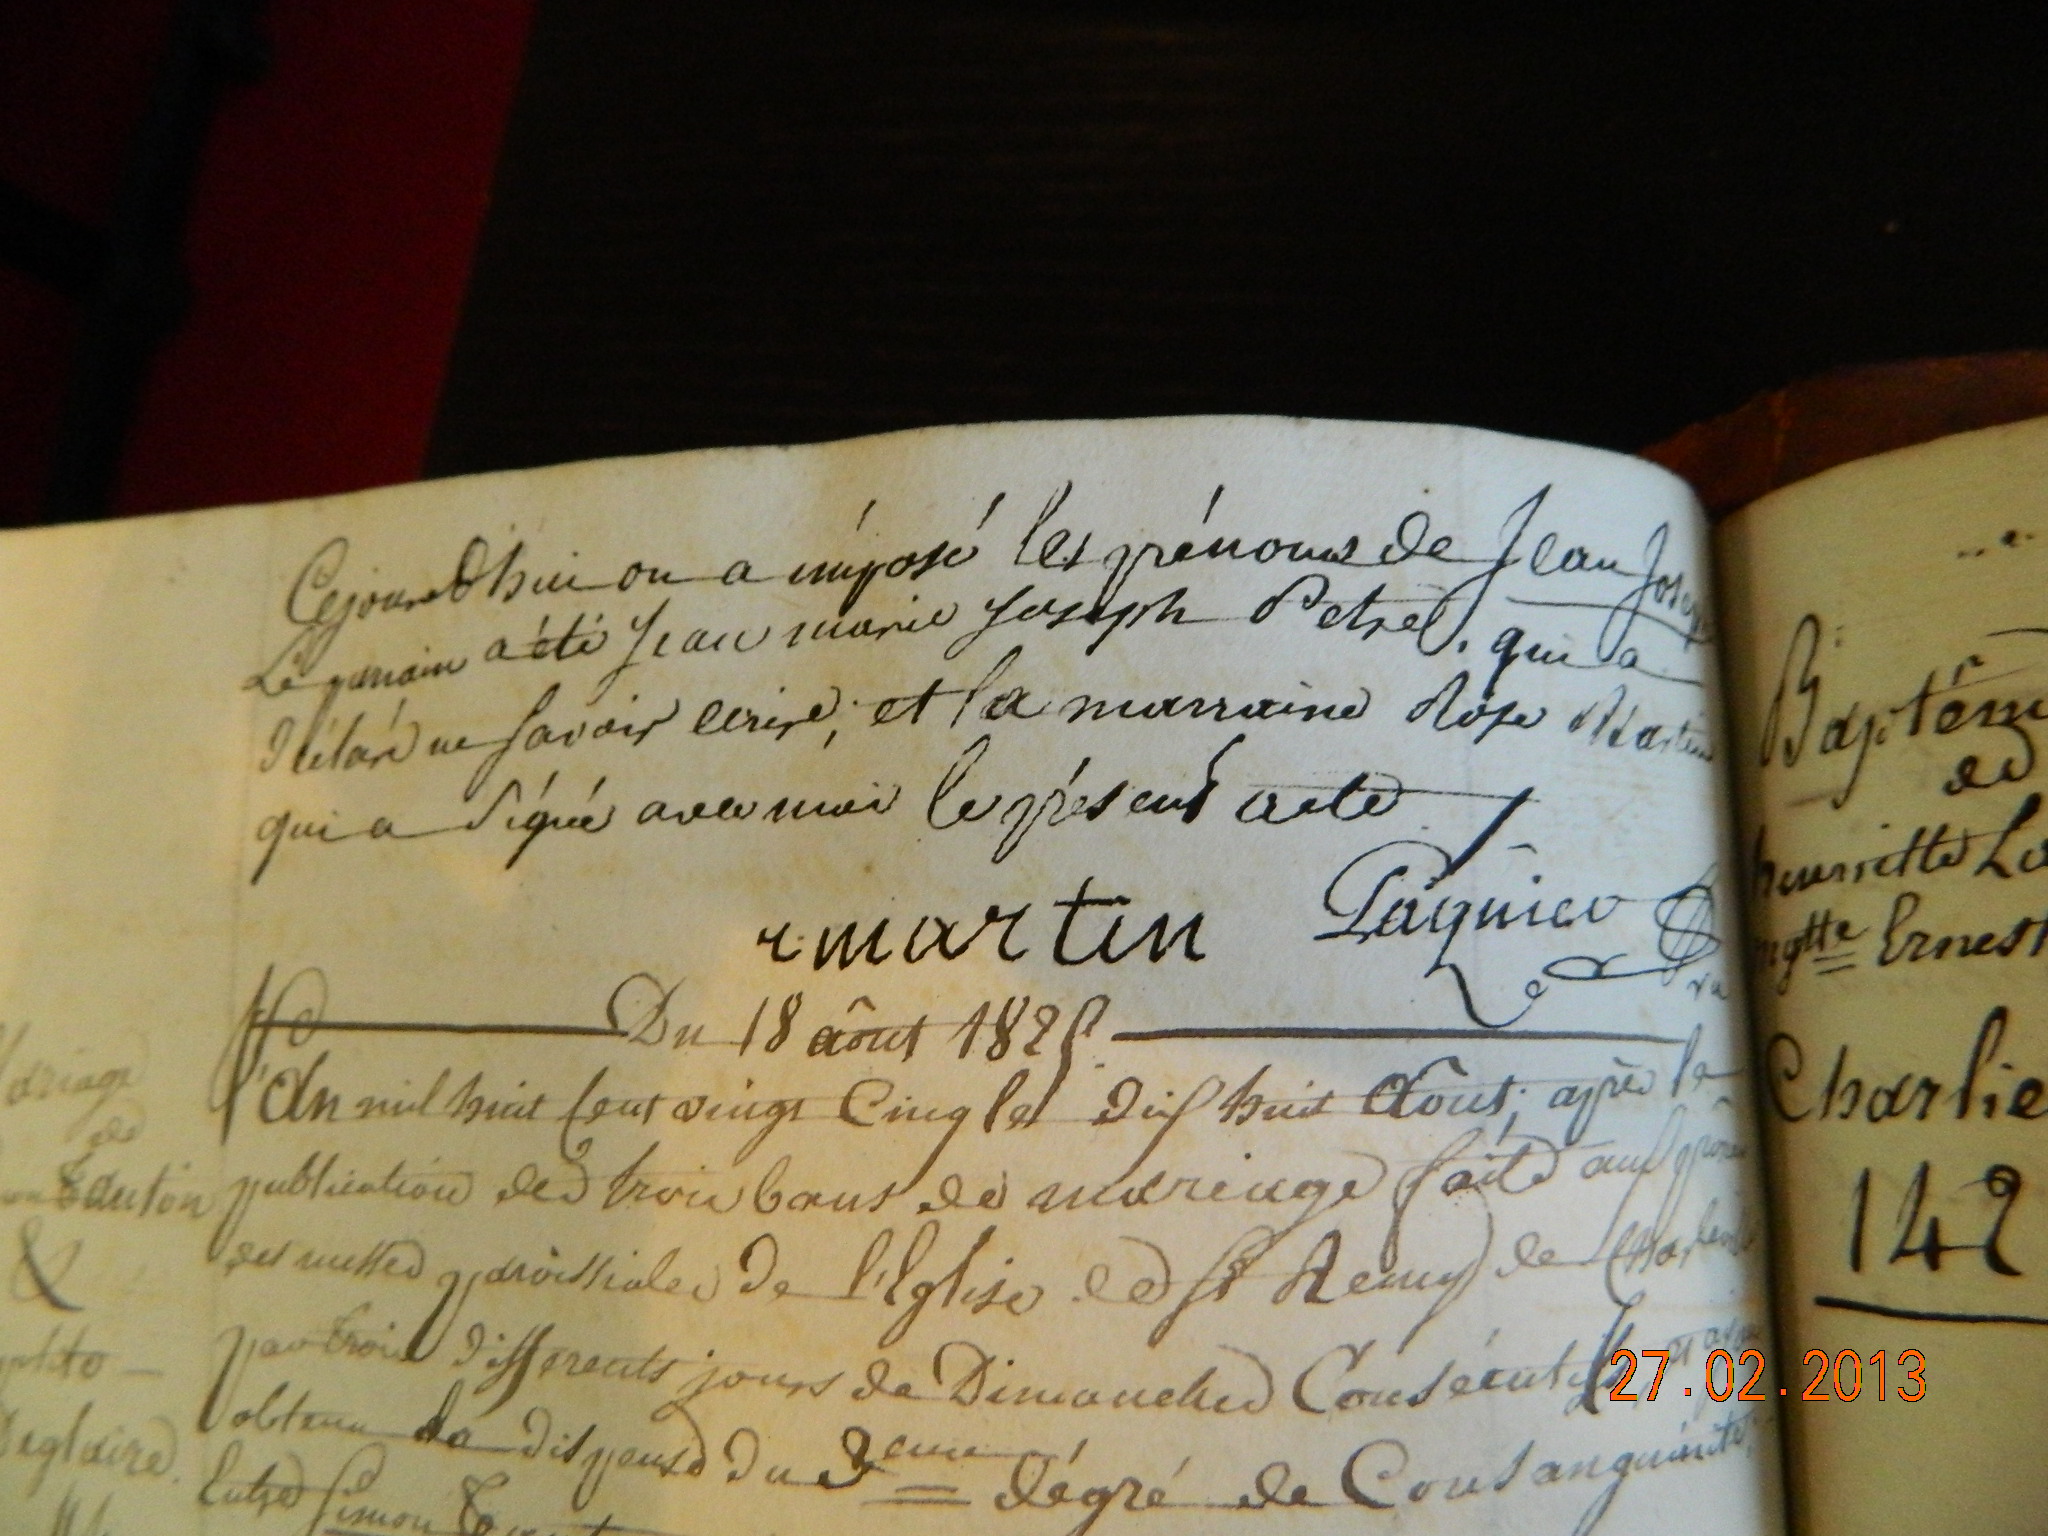 Cejourd'hui on a imposé les prénoms de Jean Joseph
Le parrain a été Jean marie Joseph Petre, qui a
déclaré ne savoir ecrire, et la marraine Rose Martin
qui a signée avec moi le présent acte
r martin Paquier
Du 18 août 1825
l'An mil huit cent vingt cinq le dix huit Août, après la
publication des trois bans de mariage faite aux prônes
des messes paroissiales de l'Eglise de St Remy de
par trois differents jours de Dimanches Consécutifs, et avoir
obtenu la dispense du 3eme dégré de Consanguinité,
Entre Simon
Mariage
de
Tauton
&
Deglaire.
Baptême
de
henriette
Ernest
Charlie
142
27.02.2013